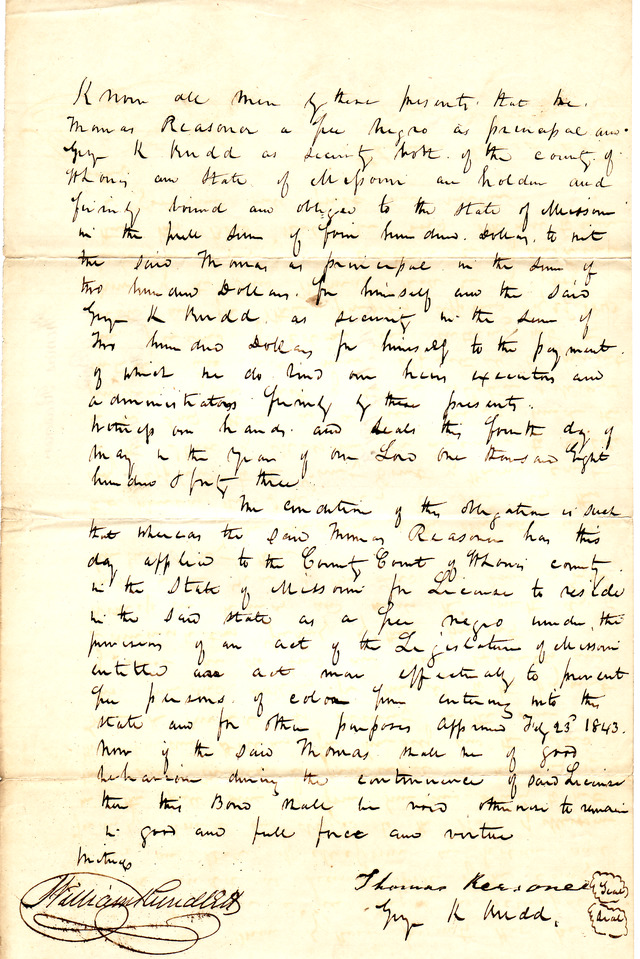 Know all men by these presents that we
Thomas Reasoner a free negro as principal and
Geo K Budd as security both of the county of
St Louis and State of Missouri are holden and
firmly bound and obliged to the State of Missouri
in the full sum of four hundred Dollars to wit
the said Thomas as principal in the sum of
two hundred Dollars for himself and the said
Geo K Budd as security in the sum of
Two hundred Dollars for himself to the payment
of which we do bind our heirs executors and
administrators firmly by these presents.
Witness our hands and seals this fourth day of
May in the Year of our Lord one thousand Eight
hundred & forty three
The condition of this obligation is such
that whereas the said Thomas Reasoner has this
day applied to the County Court of St Louis county
in the State of Missouri for License to reside
in the said state as a free negro under the
provisions of an act of the Legislature of Missouri
entitled an act more effectually to prevent
free persons of color from entering into this
state and for other purposes approved Feby 23d 1843.
Now if the said Thomas shall be of good
behavior during the continuance of said License
then this Bond shall be void otherwise to remain
in good and full force and virtue
Witness
Thomas Reasoner Seal
William
Geo K Budd. Seal